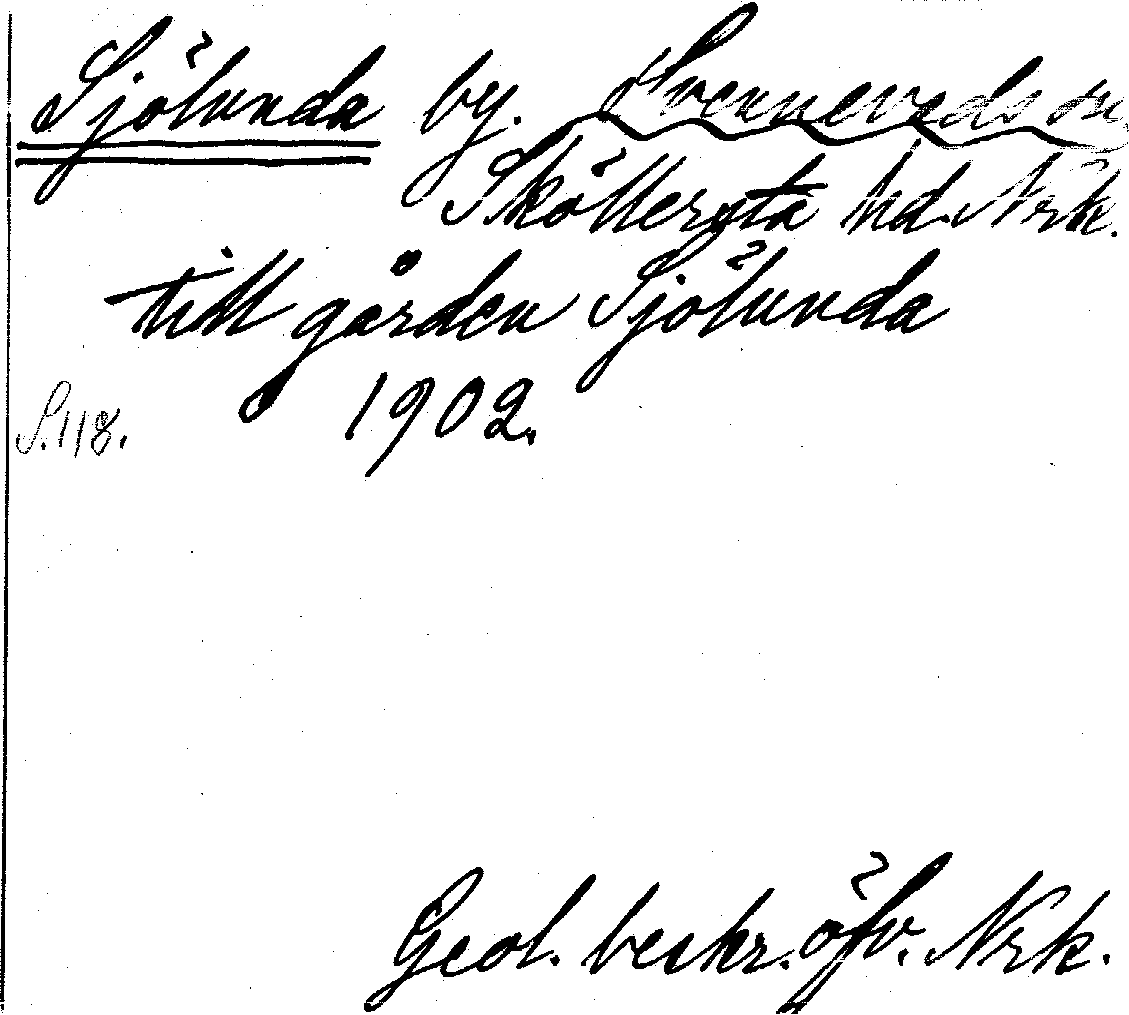 Sjölunda by. Svennevads sn,
Sköllersta hd. Nrk.
till gården Sjölunda
S. 118. 1902.
Geol. beskr. öfv. Nrk.